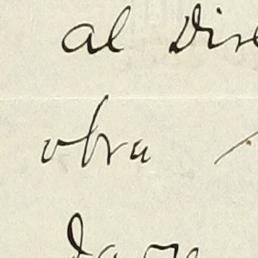 al Dire
obra